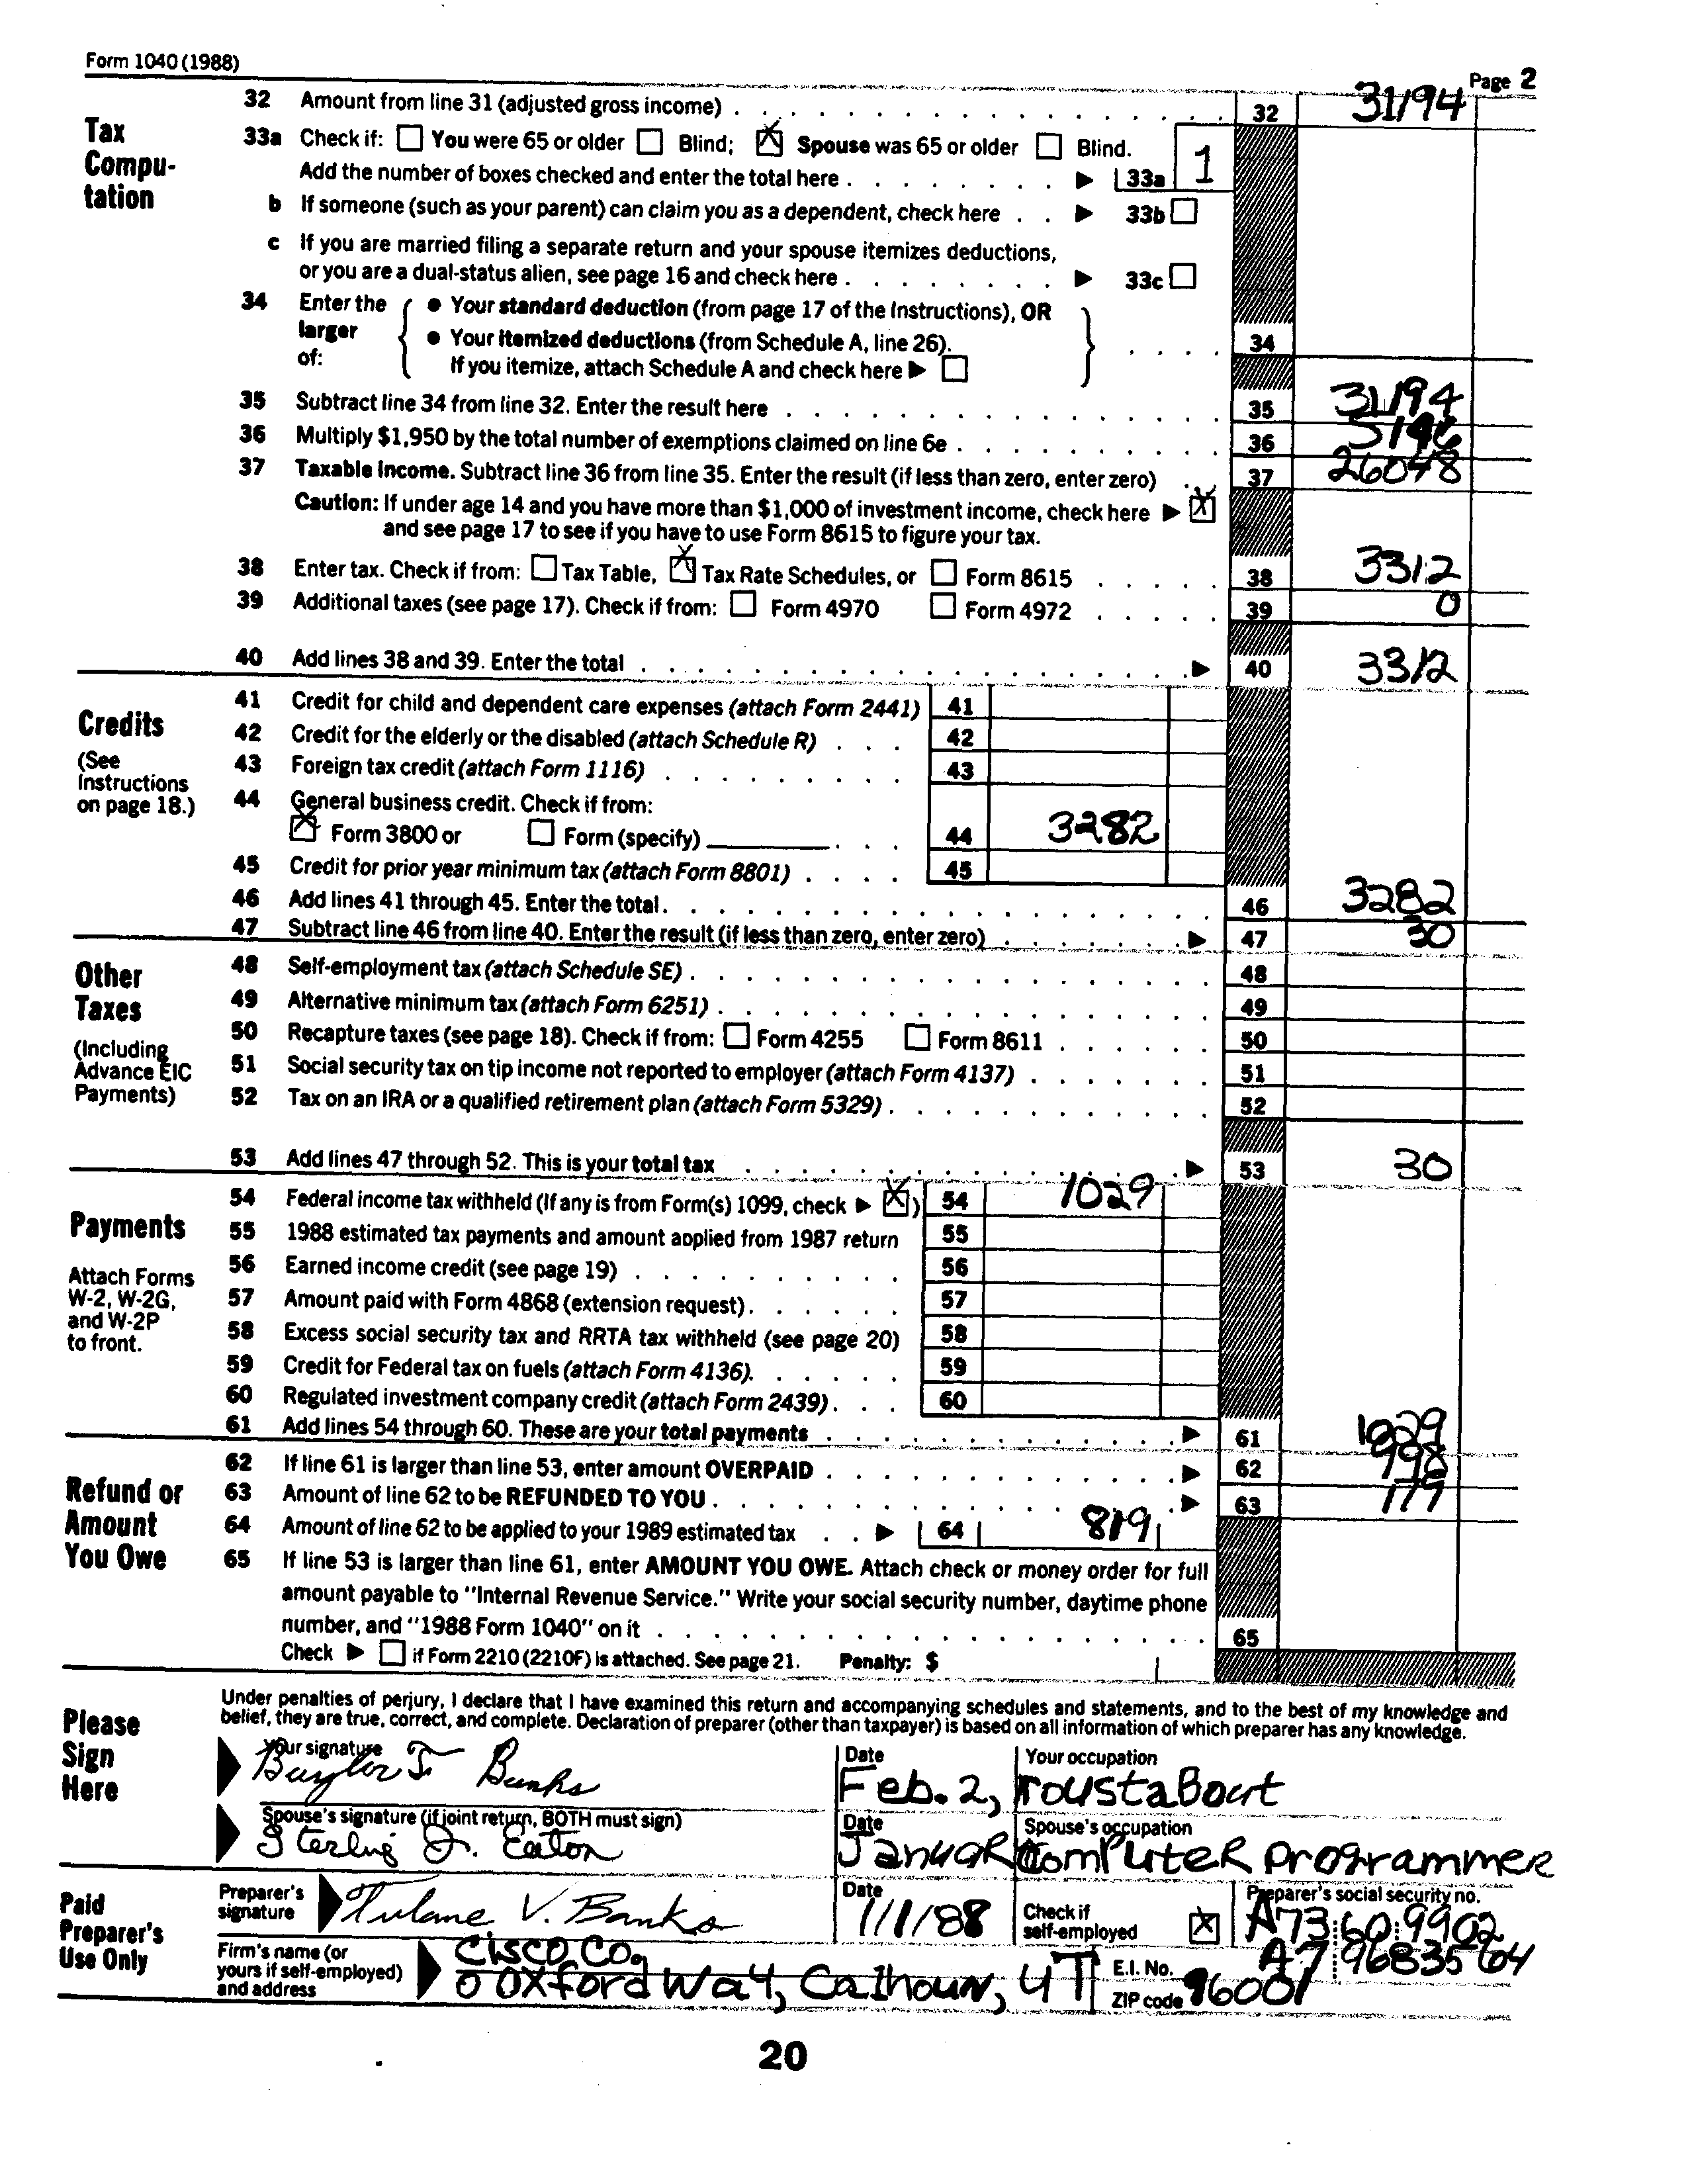 Form 1040 (1988)
Page 2
Tax Compu-tation
32 Amount from line 31 (adjusted gross income) 32 31194
33a Check if: You were 65 or older Blind; X Spouse was 65 or older Blind.
Add the number of boxes checked and enter the total here 33a 1
b If someone (such as your parent) can claim you as a dependent, check here 33b
c If you are married filing a separate return and your spouse itemizes deductions,
or you are a dual-status alien, see page 16 and check here 33c
34 Enter the larger of:
• Your standard deduction (from page 17 of the Instructions), OR
• Your itemized deductions (from Schedule A, line 26).
If you itemize, attach Schedule A and check here 34
35 Subtract line 34 from line 32. Enter the result here 35 31194
36 Multiply $1,950 by the total number of exemptions claimed on line 6e 36 5146
37 Taxable income. Subtract line 36 from line 35. Enter the result (if less than zero, enter zero) 37 26048
Caution: If under age 14 and you have more than $1,000 of investment income, check here X
and see page 17 to see if you have to use Form 8615 to figure your tax.
38 Enter tax. Check if from: Tax Table, X Tax Rate Schedules, or Form 8615 38 3312
39 Additional taxes (see page 17). Check if from: Form 4970 Form 4972 39 0
40 Add lines 38 and 39. Enter the total 40 3312
Credits
(See Instructions on page 18.)
41 Credit for child and dependent care expenses (attach Form 2441) 41
42 Credit for the elderly or the disabled (attach Schedule R) 42
43 Foreign tax credit (attach Form 1116) 43
44 General business credit. Check if from:
X Form 3800 or Form (specify) 44 3282
45 Credit for prior year minimum tax (attach Form 8801) 45
46 Add lines 41 through 45. Enter the total 46 3282
47 Subtract line 46 from line 40. Enter the result (if less than zero, enter zero) 47 30
Other Taxes
(Including Advance EIC Payments)
48 Self-employment tax (attach Schedule SE) 48
49 Alternative minimum tax (attach Form 6251) 49
50 Recapture taxes (see page 18). Check if from: Form 4255 Form 8611 50
51 Social security tax on tip income not reported to employer (attach Form 4137) 51
52 Tax on an IRA or a qualified retirement plan (attach Form 5329) 52
53 Add lines 47 through 52. This is your total tax 53 30
Payments
Attach Forms W-2, W-2G, and W-2P to front.
54 Federal income tax withheld (If any is from Form(s) 1099, check X) 54 1029
55 1988 estimated tax payments and amount applied from 1987 return 55
56 Earned income credit (see page 19) 56
57 Amount paid with Form 4868 (extension request) 57
58 Excess social security tax and RRTA tax withheld (see page 20) 58
59 Credit for Federal tax on fuels (attach Form 4136) 59
60 Regulated investment company credit (attach Form 2439) 60
61 Add lines 54 through 60. These are your total payments 61 1029
Refund or Amount You Owe
62 If line 61 is larger than line 53, enter amount OVERPAID 62 998
63 Amount of line 62 to be REFUNDED TO YOU 63 179
64 Amount of line 62 to be applied to your 1989 estimated tax 64 819
65 If line 53 is larger than line 61, enter AMOUNT YOU OWE. Attach check or money order for full
amount payable to "Internal Revenue Service." Write your social security number, daytime phone
number, and "1988 Form 1040" on it 65
Check if Form 2210 (2210F) is attached. See page 21. Penalty: $
Please Sign Here
Under penalties of perjury, I declare that I have examined this return and accompanying schedules and statements, and to the best of my knowledge and
belief, they are true, correct, and complete. Declaration of preparer (other than taxpayer) is based on all information of which preparer has any knowledge.
Your signature Date Your occupation
Baylor T Banks Feb. 2, roustabout
Spouse's signature (if joint return, BOTH must sign) Date Spouse's occupation
Sterling J. Eaton Januar Computer programmer
Paid Preparer's Use Only
Preparer's signature Tulane V. Banks Date 1/1/88 Check if self-employed X Preparer's social security no. A73 60 9902
Firm's name (or yours if self-employed) and address Cisco Co. E.I. No. A7 96835704
0 Oxford Way, Calhoun, UT ZIP code 96001
20